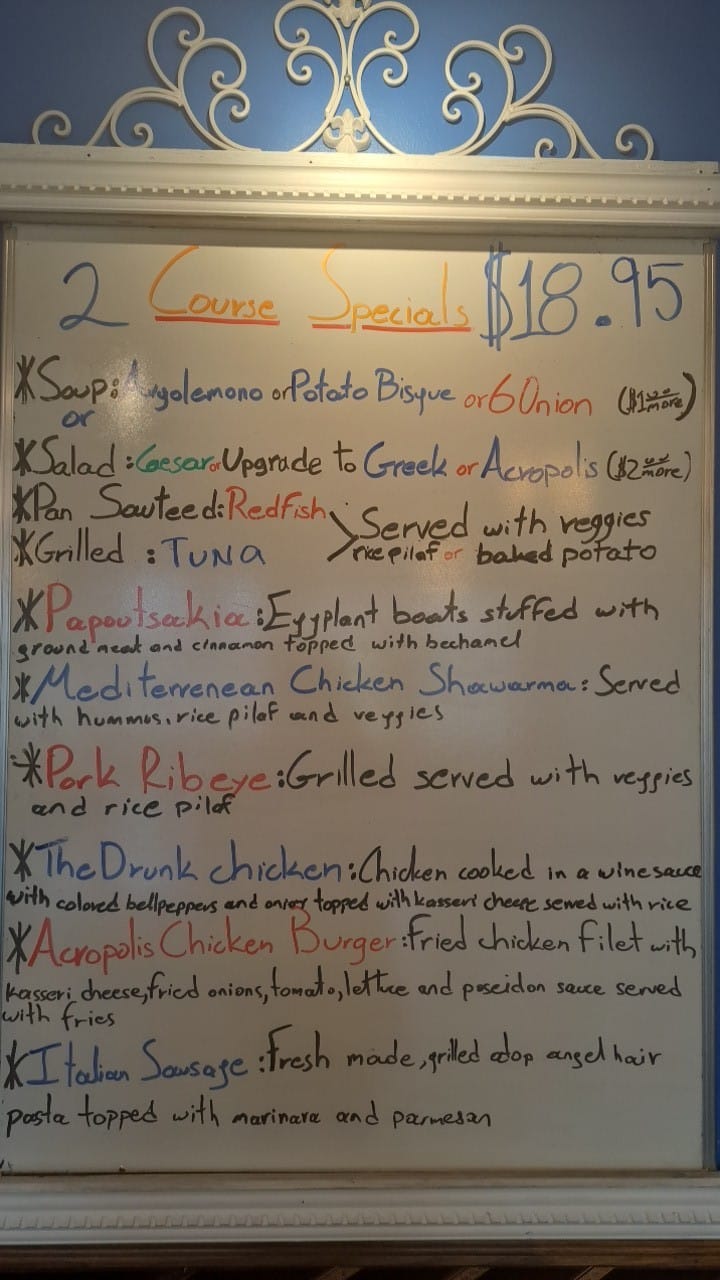 2 Course Specials $18.95
*Soup: Avgolemono or Potato Bisque or 6 Onion ($1.00 more)
or
*Salad: Caesar or Upgrade to Greek or Acropolis ($2.00 more)
*Pan Sauteed: Redfish
*Grilled: TUNA
Served with veggies
rice pilaf or baked potato
*Papoutsakia: Eggplant boats stuffed with
ground meat and cinnamon topped with bechamel
*Mediterrenean Chicken Shawarma: Served
with hummus, rice pilaf and veggies
*Pork Ribeye: Grilled served with veggies
and rice pilaf
*The Drunk chicken: Chicken cooked in a wine sauce
with colored bellpeppers and topped with kasseri cheese served with rice
*Acropolis Chicken Burger: Fried chicken filet with
kasseri cheese, fried onions, tomato, lettuce and poseidon sauce served
with fries
*Italian Sausage: Fresh made, grilled atop angel hair
pasta topped with marinara and parmesan